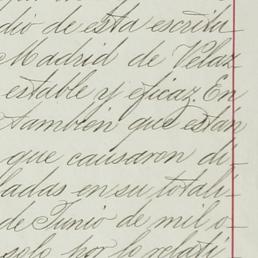 dio de esta escritu
Madrid de Velaz
estable y eficaz. En
también que están
que causaron di
ladas en su totali
de Junio de mil o
solo por lo relati